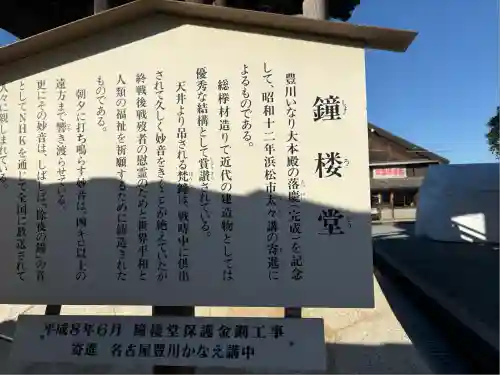 鐘楼堂
しょうろうどう
豊川いなり大本殿の落慶(完成)を記念
して、昭和十二年浜松市太々講の寄進に
よるものである。
総欅材造りで近代の建造物としては
優秀な結構として賞讃されている。
天井より吊される梵鐘は、戦時中に供出
されて久しく妙音をきくことが絶えていたが
終戦後戦歿者の慰霊のためと世界平和と
人類の福祉を祈願するために鋳造された
ものである。
朝夕に打ち鳴らす妙音は、四キロ以上の
遠方まで響き渡らせている。
更にその妙音は、しばしば「除夜の鐘」の音
としてNHKを通じて全国に放送されて
人々に親しまれている。
平成8年6月 鐘楼堂保護金銅工事
寄進 名古屋豊川かなえ講中